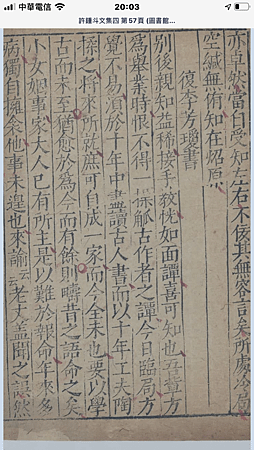 中華電信 20:03
許鍾斗文集四 第57頁 (圖書館...
亦卓歟當自受知左右不佞其無容言矣所處冷局
空緘無侑知在炤原
復李方書
別後親知益稀接手敎恍如面譚喜可知也五章方
為舉業時恨不得探觚古作者之譚今日臨局方
覺不易須於十年中盡讀古人書而以十年工夫陶
之將來所就庶可自成一家而今全未也要以學
古而未至猶愈於為今而有餘則疇昔之語命之矣
小女姻事家大人已有所主是以難於報命年來多
病獨自擁衾他事未遑也來諭云云老丈蓋聞之誤然